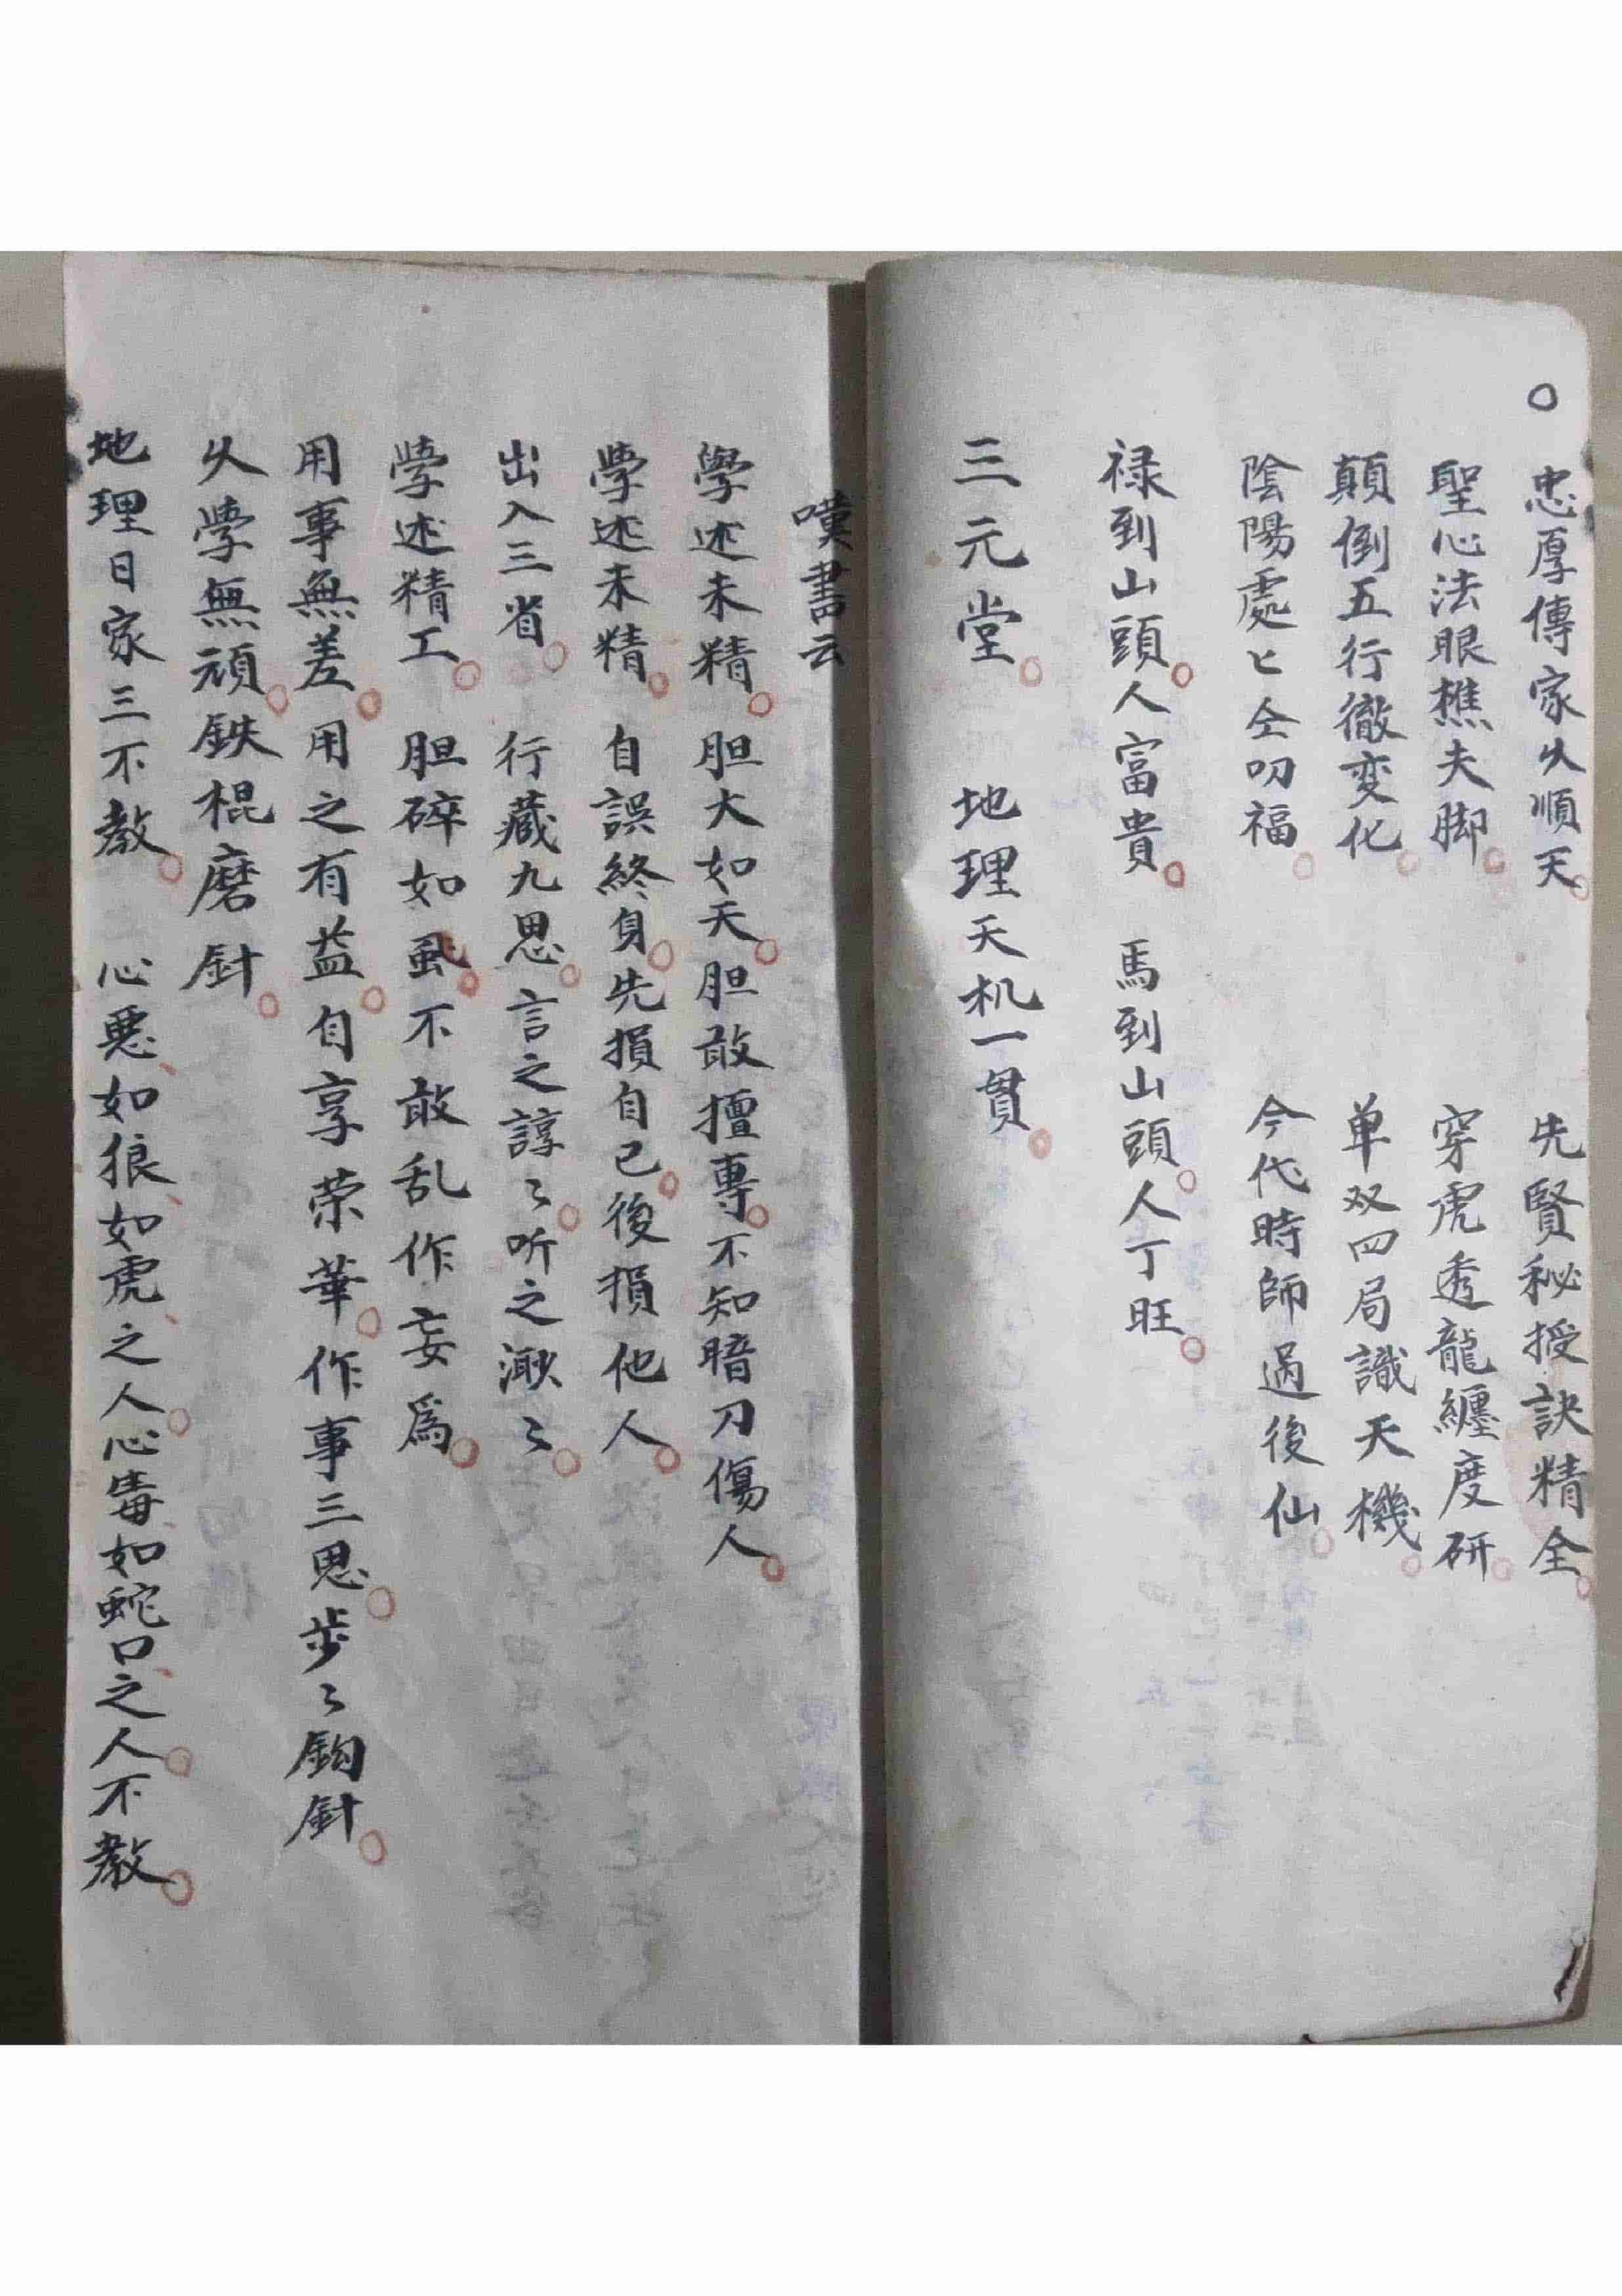 ○忠厚傳家久順天。先賢秘授訣精全。
聖心法眼樵夫脚。穿虎透龍纏度研。
顛倒五行徹変化。单双四局識天機。
陰陽處〻仝叨福。今代時師過後仙。
禄到山頭。人富貴。馬到山頭。人丁旺。
三元堂。地理天机一貫。
嘆書云
學述未精。胆大如天。胆敢擅專。不知暗刀傷人。
学述未精。自誤終身。先損自己。後損他人。
出入三省。行藏九思。言之諄〻。听之漱〻。
学述精工。胆碎如虱。不敢乱作妄為。
用事無差。用之有益。自享荣華。作事三思。步〻鈎針。
久学無頑。鉄棍磨針。
地理日家三不教。心悪、如狼、如虎、之人。心毒如蛇口之人。不教。